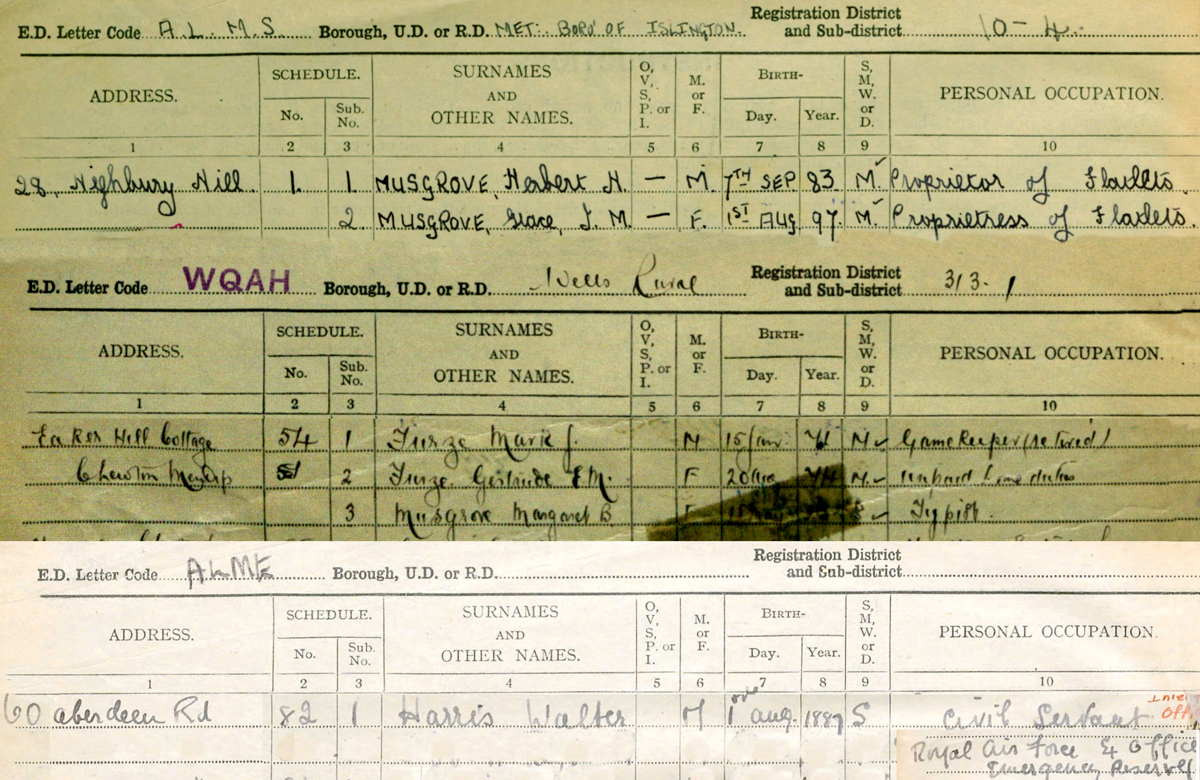 E.D. Letter Code A.L.M.S. Borough, U.D. or R.D. MET: BORO' OF ISLINGTON. Registration District and Sub-district 10-4.
ADDRESS. SCHEDULE. No. Sub. No. SURNAMES AND OTHER NAMES. O, V, S, P. or I. M. or F. BIRTH- Day. Year. S, M, W. or D. PERSONAL OCCUPATION.
1 2 3 4 5 6 7 8 9 10
28, Highbury Hill 1. 1. MUSGROVE, Herbert H. — M. 7TH SEP 83 M. Proprietor of Flatlets.
2. MUSGROVE, Grace, J. M. — F. 1ST AUG 97. M. Proprietress of Flatlets.
E.D. Letter Code WQAH Borough, U.D. or R.D. Wells Rural Registration District and Sub-district 313. 1
ADDRESS. SCHEDULE. No. Sub. No. SURNAMES AND OTHER NAMES. O, V, S, P. or I. M. or F. BIRTH- Day. Year. S, M, W. or D. PERSONAL OCCUPATION.
1 2 3 4 5 6 7 8 9 10
Hill Cottage 54 1 Furze Mark J. M 15 M Gamekeeper (retired)
Chewton Mendip 2 Furze Gertrude E M. F 20 74 M unpaid home duties
3 Musgrove Margaret B F Typist.
E.D. Letter Code ALME Borough, U.D. or R.D. Registration District and Sub-district
ADDRESS. SCHEDULE. No. Sub. No. SURNAMES AND OTHER NAMES. O, V, S, P. or I. M. or F. BIRTH- Day. Year. S, M, W. or D. PERSONAL OCCUPATION.
1 2 3 4 5 6 7 8 9 10
60 aberdeen Rd 82 1 Harris Walter M 1 aug. 1887 S Civil Servant
Royal Air Force E4 Office
Emergency Reserve